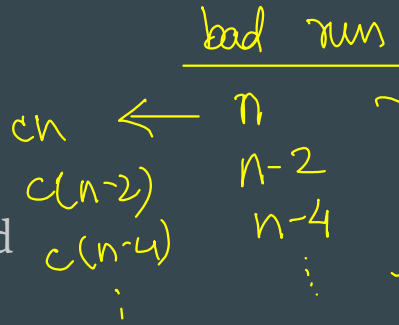 bad runs
cn ← n
c(n-2) n-2
c(n-4) n-4
⋮ ⋮